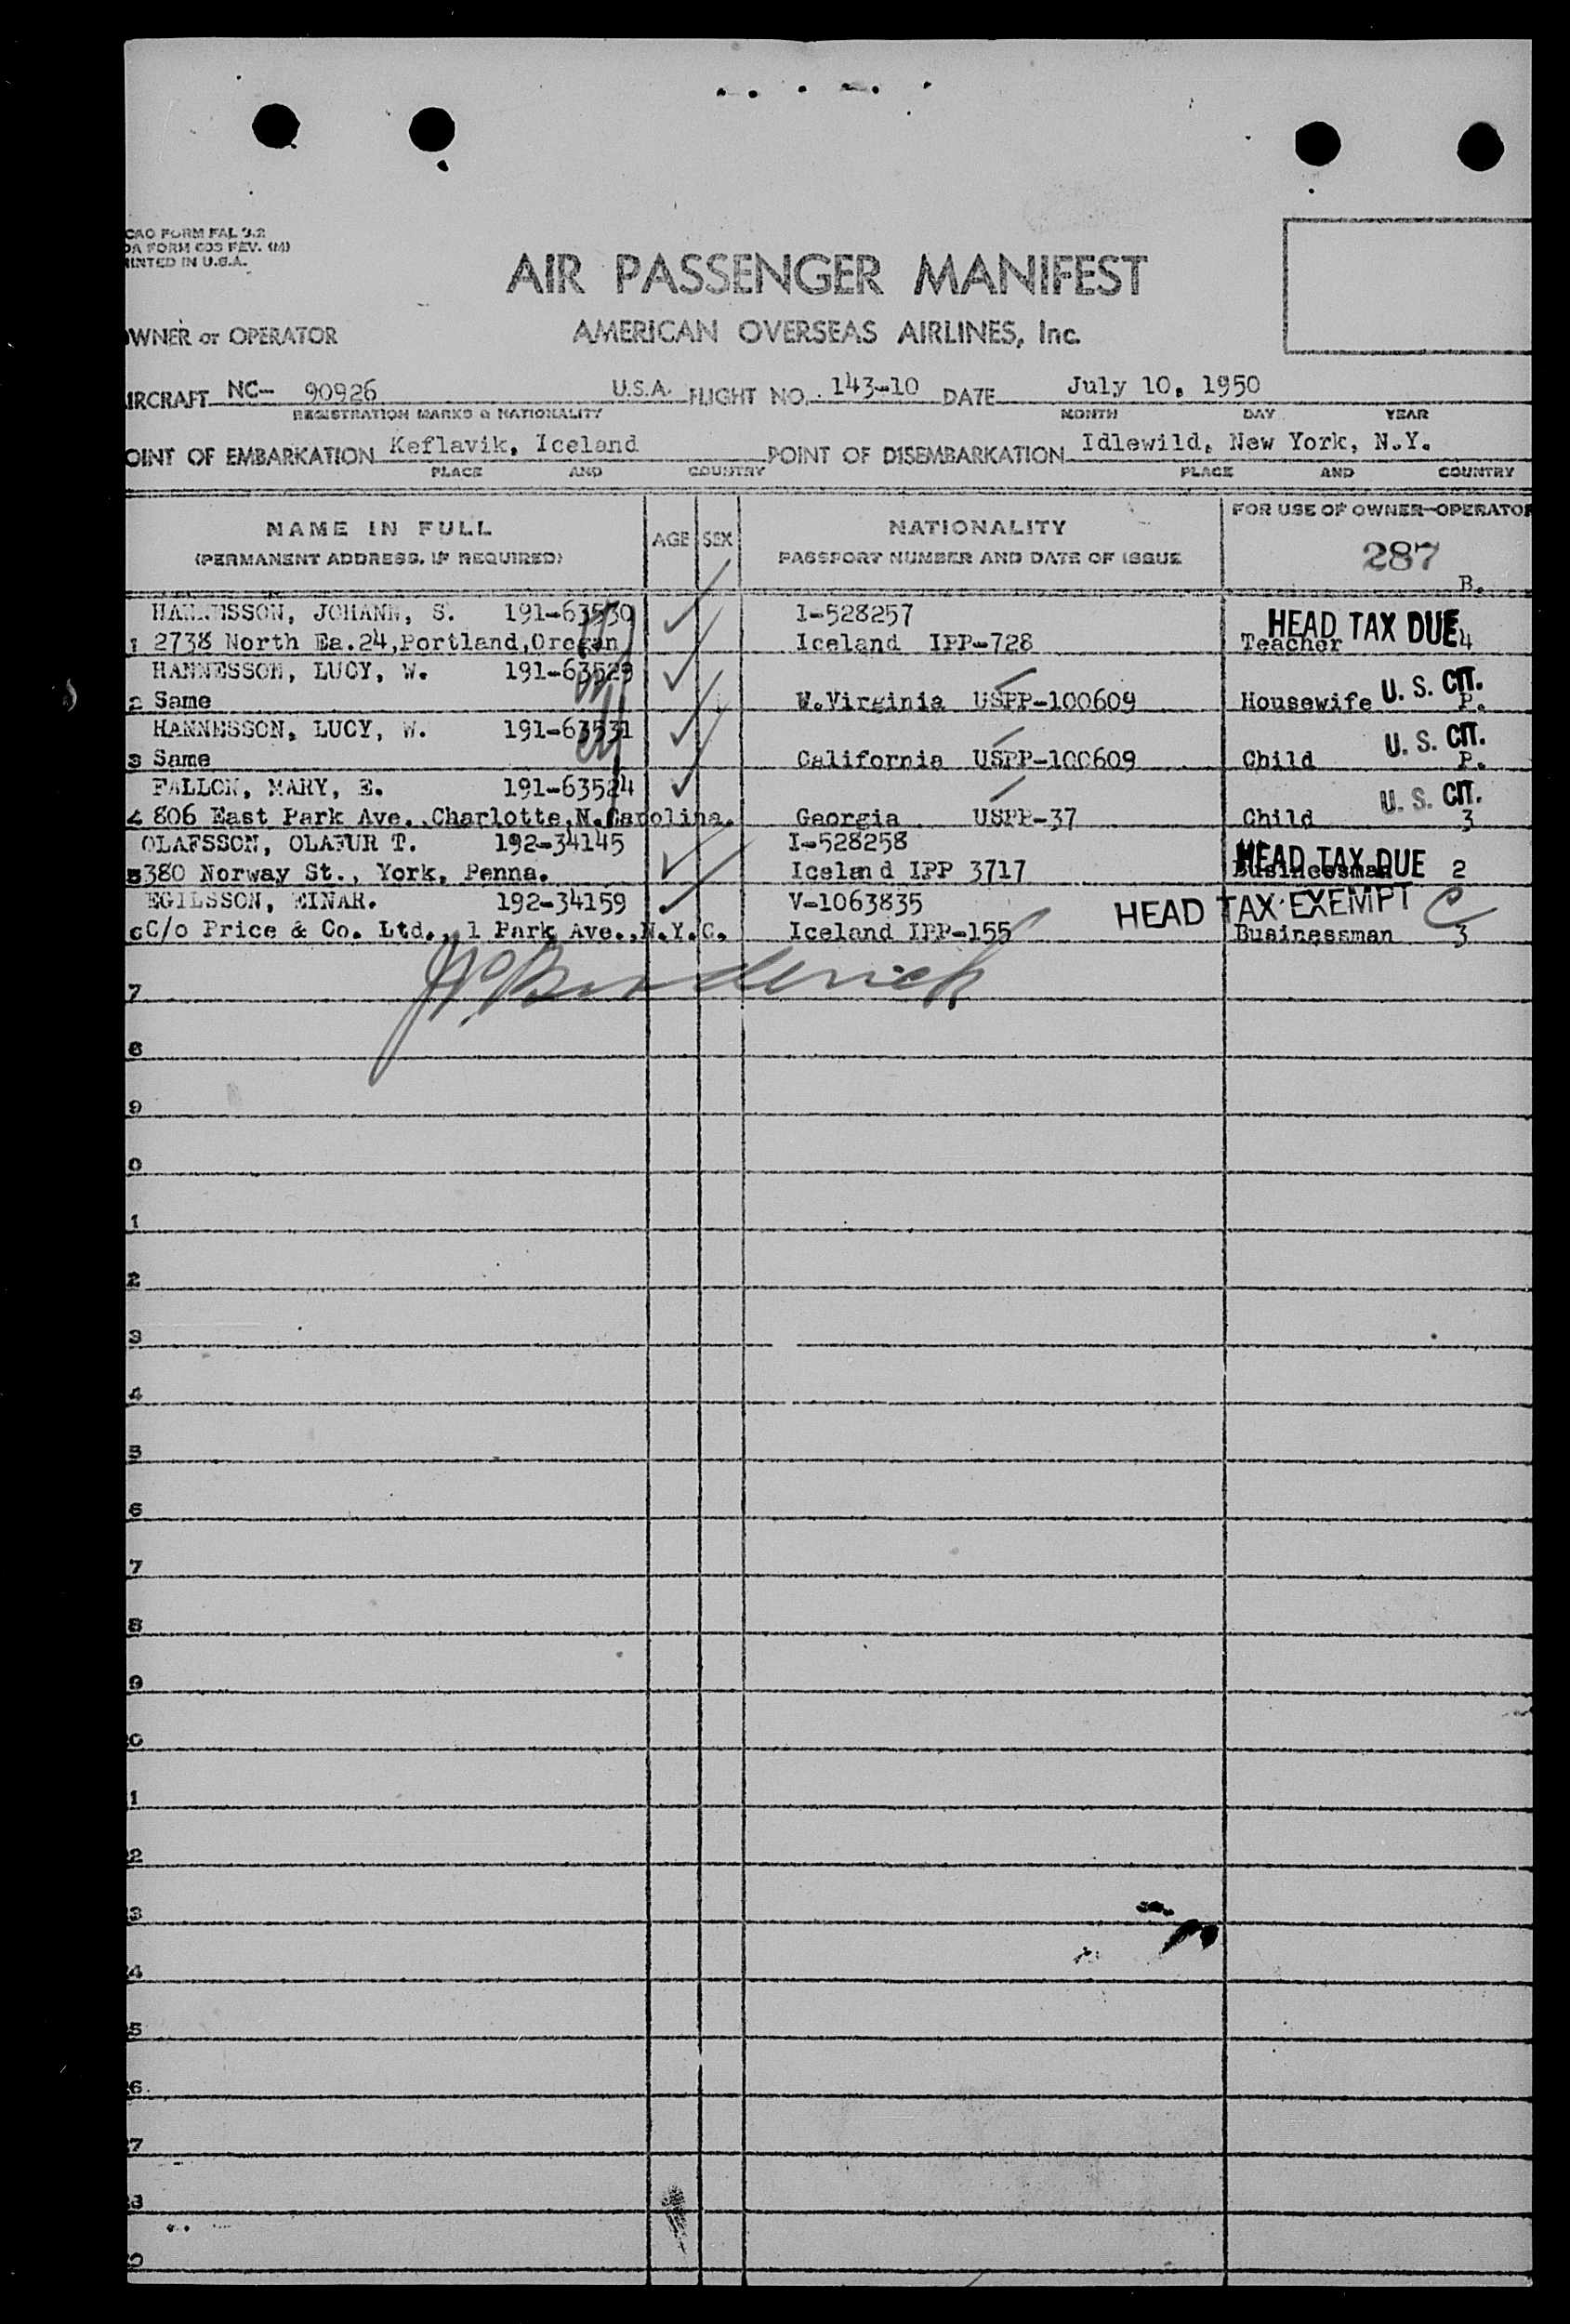 CAO FORM FAL 3.2
OA FORM 603 REV. (M)
RINTED IN U.S.A.
AIR PASSENGER MANIFEST
OWNER or OPERATOR
AMERICAN OVERSEAS AIRLINES, Inc.
IRCRAFT NC- 90926 U.S.A. FLIGHT NO. 143-10 DATE July 10, 1950
REGISTRATION MARKS & NATIONALITY MONTH DAY YEAR
OINT OF EMBARKATION Keflavik, Iceland POINT OF DISEMBARKATION Idlewild, New York, N.Y.
PLACE AND COUNTRY PLACE AND COUNTRY
NAME IN FULL AGE SEX NATIONALITY FOR USE OF OWNER-OPERATOR
(PERMANENT ADDRESS, IF REQUIRED) PASSPORT NUMBER AND DATE OF ISSUE 287
B.
HANNESSON, JOHANN, S. 191-63530 I-528257 HEAD TAX DUE
1 2738 North Ea.24,Portland,Oregon Iceland IPP-728 Teacher 4
HANNESSON, LUCY, W. 191-63529 U. S. CIT.
2 Same W.Virginia USPP-100609 Housewife P.
HANNESSON, LUCY, W. 191-63531 U. S. CIT.
3 Same California USPP-100609 Child P.
FALLON, MARY, E. 191-63524 U. S. CIT.
4 806 East Park Ave.,Charlotte,N.Carolina. Georgia USPP-37 Child 3
OLAFSSON, OLAFUR T. 192-34145 I-528258 HEAD TAX DUE
5 380 Norway St., York, Penna. Iceland IPP 3717 Businessman 2
EGILSSON, EINAR. 192-34159 V-1063835 HEAD TAX EXEMPT C
6 C/o Price & Co. Ltd., 1 Park Ave.,N.Y.C. Iceland IPP-155 Businessman 3
Broderick
7
8
9
0
1
2
3
4
5
6
7
8
9
0
1
2
3
4
5
6
7
8
9